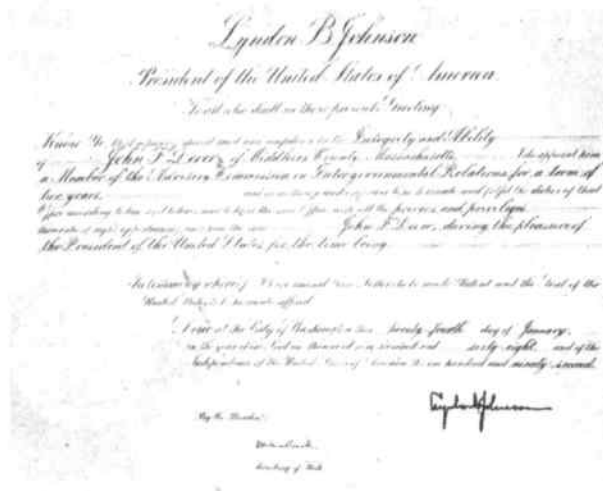 Lyndon B Johnson
President of the United States of America.
To all who shall see these presents, Greeting:
Know Ye that reposing special trust and confidence in the Integrity and Ability
of John F Dever of Middlesex County, Massachusetts I do appoint him
a Member of the Advisory Commission on Intergovernmental Relations for a term of
two years, and to fulfil the duties of that
Office according to law and to have and to hold the said Office, with all the powers and privileges
of right appertaining unto him the said John F Dever, during the pleasure of
the President of the United States for the time being.
In testimony whereof, I have caused these Letters to be made Patent and the Seal of the
United States to be affixed.
Done at the City of Washington this twenty-fourth day of January,
in the year of our Lord one thousand nine hundred and sixty-eight, and of the
Independence of the United States of America the one hundred and ninety-second.
Lyndon B Johnson
By the President:
Secretary of State